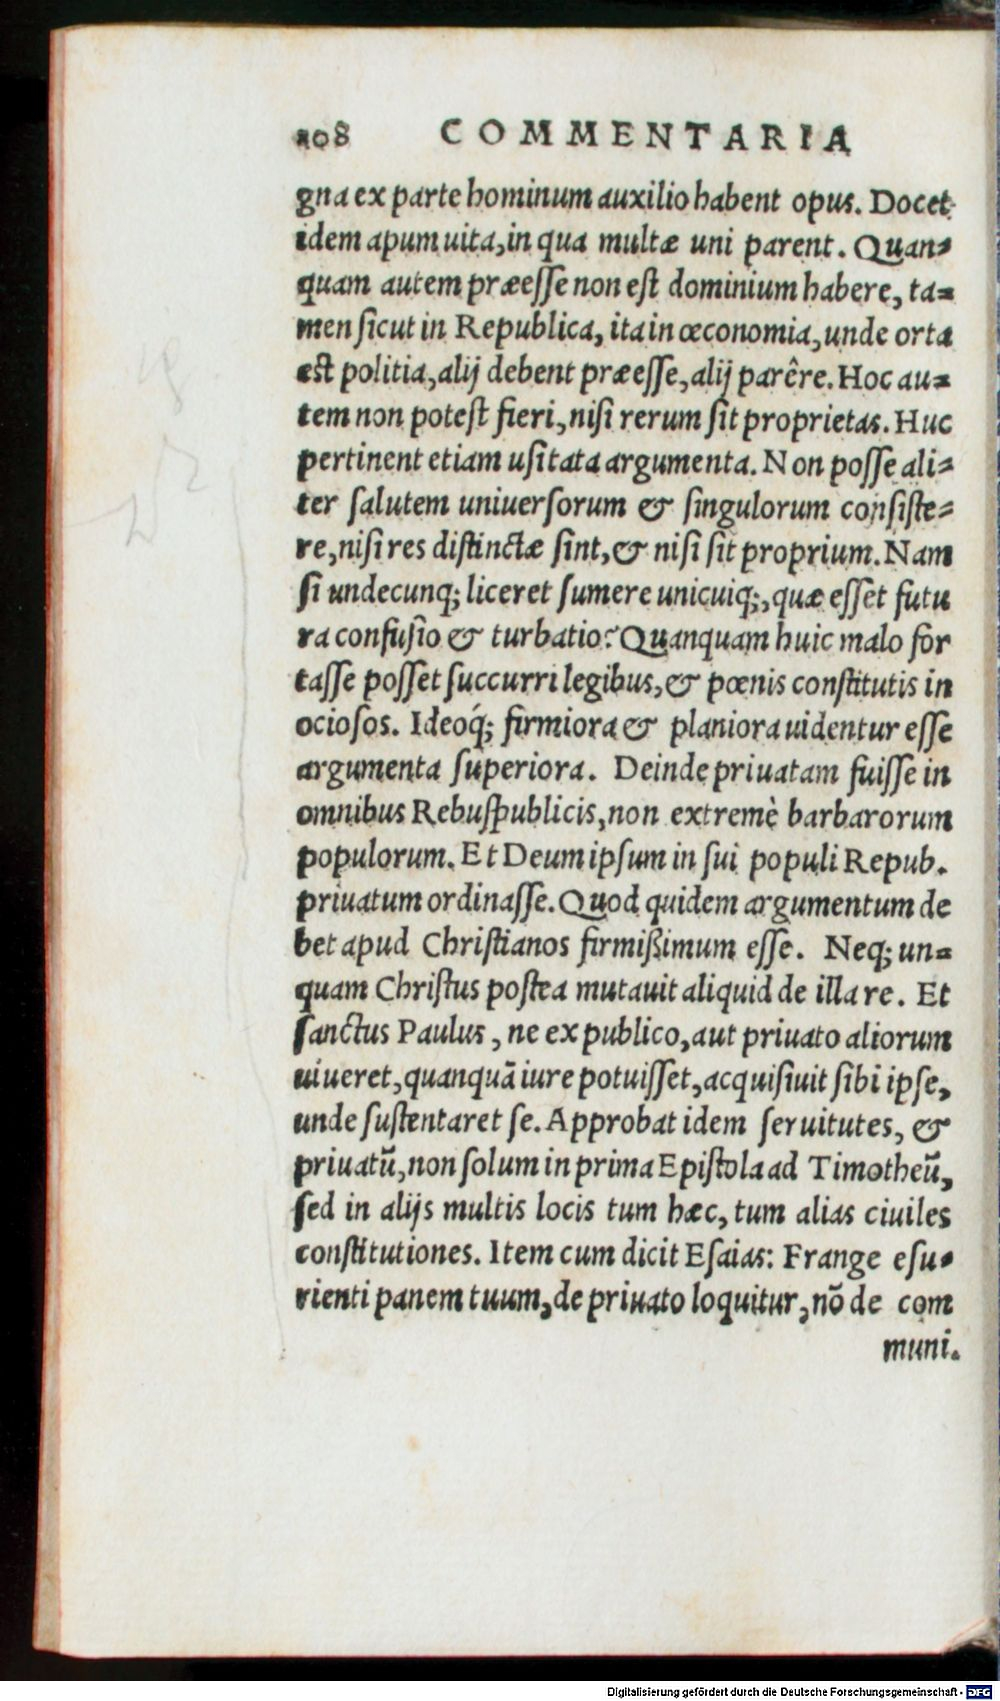 108 COMMENTARIA
gna ex parte hominum auxilio habent opus. Docet
idem apum uita, in qua multæ uni parent. Quan⸗
quam autem præesse non est dominium habere, ta⸗
men sicut in Republica, ita in œconomia, unde orta
est politia, alij debent præesse, alij parêre. Hoc au⸗
tem non potest fieri, nisi rerum sit proprietas. Huc
pertinent etiam usitata argumenta. Non posse ali⸗
ter salutem uniuersorum & singulorum consiste⸗
re, nisi res distinctæ sint, & nisi sit proprium. Nam
si undecunq; liceret sumere unicuiq;, quæ esset futu
ra confusio & turbatio? Quanquam huic malo for
tasse posset succurri legibus, & pœnis constitutis in
ociosos. Ideoq́; firmiora & planiora uidentur esse
argumenta superiora. Deinde priuatam fuisse in
omnibus Rebuspublicis, non extremè barbarorum
populorum. Et Deum ipsum in sui populi Repub.
priuatum ordinasse. Quod quidem argumentum de
bet apud Christianos firmißimum esse. Neq; un⸗
quam Christus postea mutauit aliquid de illa re. Et
sanctus Paulus, ne ex publico, aut priuato aliorum
uiueret, quanquā iure potuisset, acquisiuit sibi ipse,
unde sustentaret se. Approbat idem seruitutes, &
priuatũ, non solum in prima Epistola ad Timotheũ,
sed in alijs multis locis tum hæc, tum alias ciuiles
constitutiones. Item cum dicit Esaias: Frange esu⸗
rienti panem tuum, de priuato loquitur, nõ de com
muni.
Digitalisierung gefördert durch die Deutsche Forschungsgemeinschaft - DFG